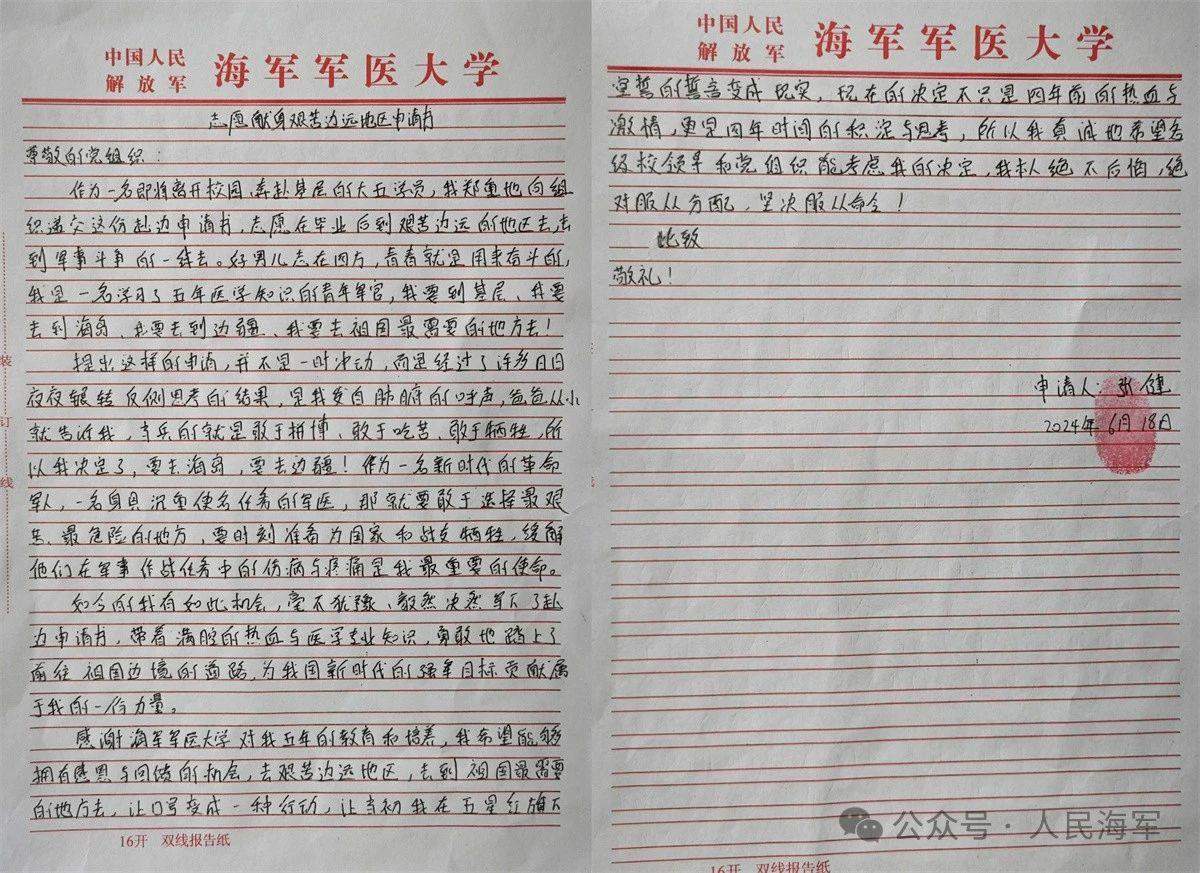 中国人民
解放军 海军军医大学
志愿献身艰苦边远地区申请书
尊敬的党组织：
作为一名即将离开校园、奔赴基层的大五学员，我郑重地向组
织递交这份赴边申请书，志愿在毕业后到艰苦边远的地区去，去
到军事斗争的一线去。好男儿志在四方，青春就是用来奋斗的，
我是一名学习了五年医学知识的青年军官，我要到基层、我要
去到海岛、我要去到边疆、我要去祖国最需要的地方去！
提出这样的申请，并不是一时冲动，而是经过了许多日日
夜夜辗转反侧思考的结果，是我发自肺腑的呼声，爸爸从小
就告诉我，当兵的就是敢于拼搏、敢于吃苦、敢于牺牲，所
以我决定了，要去海岛，要去边疆！作为一名新时代的革命
军人，一名身具沉重使命任务的军医，那就要敢于选择最艰
苦、最危险的地方，要时刻准备为国家和战友牺牲，缓解
他们在军事作战任务中的伤病与疼痛是我最重要的使命。
如今的我有如此机会，毫不犹豫、毅然决然写下了赴
边申请书，带着满腔的热血与医学专业知识，勇敢地踏上了
前往祖国边境的道路，为我国新时代的强军目标贡献属
于我的一份力量。
感谢海军军医大学对我五年的教育和培养，我希望能够
拥有感恩与回馈的机会，去艰苦边远地区，去到祖国最需要
的地方去，让口号变成一种行动，让当初我在五星红旗下
16开 双线报告纸
装
订
线
中国人民
解放军 海军军医大学
宣誓的誓言变成现实，现在的决定不只是四年前的热血与
激情，更是四年时间的积淀与思考，所以我真诚地希望各
级校领导和党组织能考虑我的决定，我本人绝不后悔，绝
对服从分配，坚决服从命令！
此致
敬礼！
申请人：张健
2024年6月18日
公众号·人民海军
16开 双线报告纸